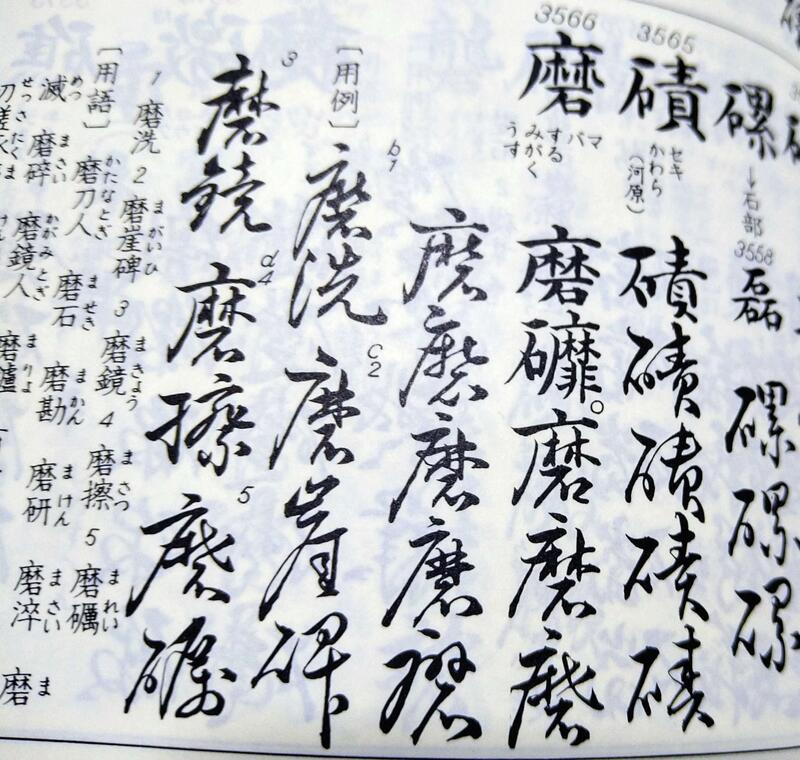 磥→石部
3558
磊
磥
磥
磥
3565
磧
セキ
かわら
(河原)
磧
磧
磧
磧
磧
3566
磨
マ
バ
する
みがく
うす
磨
礳。
磨
磨
磨
磨
磨
磨
磨
磨
〔用例〕
b1
磨洗
c2
磨崖碑
3
磨鏡
d4
磨擦
5
磨礪
〔用語〕
1 磨洗 2 磨崖碑 3 磨鏡 4 磨擦 5 磨礪
まがいひ まきょう まさつ まれい
磨刀人 磨石 磨勘 磨研 磨淬 磨
かたなとぎ ませき まかん まけん まさい ま
滅 磨碎 磨鏡人
めつ まさい かがみとぎ